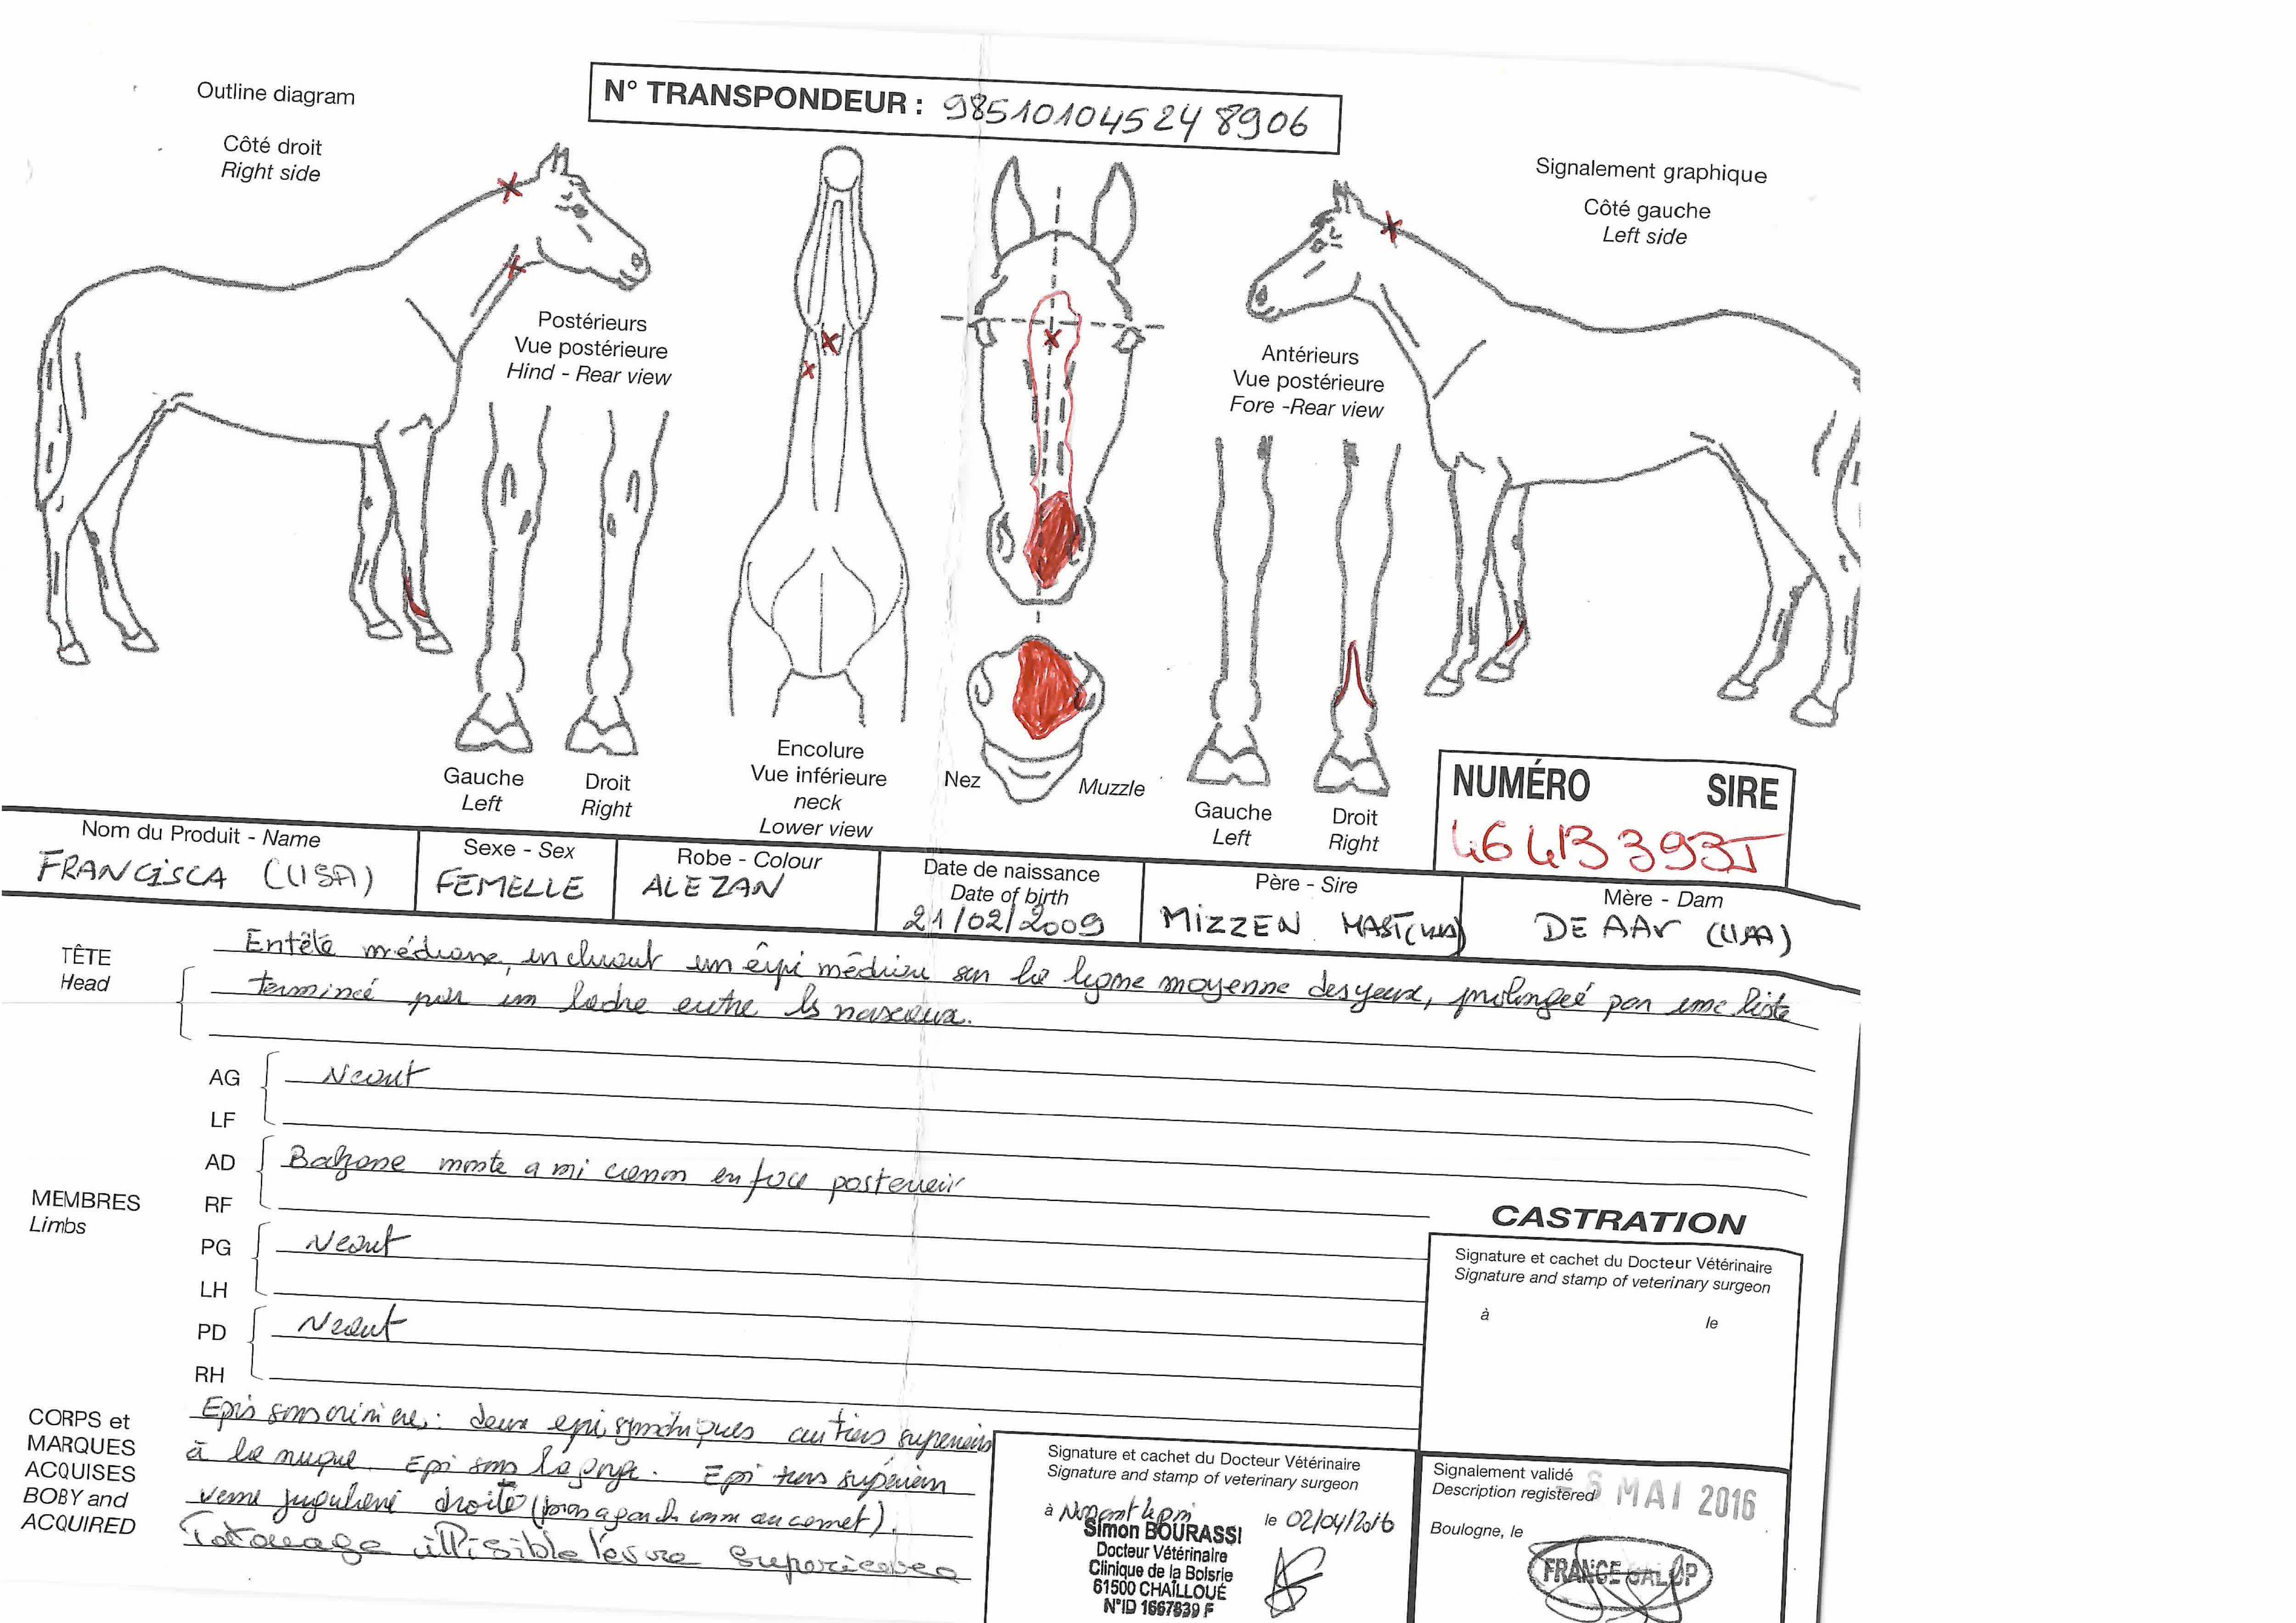 Outline diagram
N° TRANSPONDEUR : 985101045248906
Côté droit
Right side
Signalement graphique
Côté gauche
Left side
Postérieurs
Vue postérieure
Hind - Rear view
Antérieurs
Vue postérieure
Fore -Rear view
Gauche
Left
Droit
Right
Encolure
Vue inférieure
neck
Lower view
Nez
Muzzle
Gauche
Left
Droit
Right
NUMÉRO SIRE
46413393J
Nom du Produit - Name
FRANCISCA (USA)
Sexe - Sex
FEMELLE
Robe - Colour
ALEZAN
Date de naissance
Date of birth
21/02/2009
Père - Sire
MIZZEN MAST (USA)
Mère - Dam
DE AAr (USA)
TÊTE
Head
Entête médiane, incluant un épi médian sur la ligne moyenne des yeux, prolongée par une liste
terminée par un ladre entre ls naseaux.
MEMBRES
Limbs
AG
LF
Neant
AD
RF
Balzane monte a mi canon en face posterieur
PG
LH
Neant
PD
RH
Neant
CASTRATION
Signature et cachet du Docteur Vétérinaire
Signature and stamp of veterinary surgeon
à le
CORPS et
MARQUES
ACQUISES
BOBY and
ACQUIRED
Epis sous crinière : deux epis symétriques au tiers superieurs
à la nuque. Epi sous la gorge. Epi tiers supérieur
veine jugulaire droite (pas a gauche comme au carnet).
Tatouage illisible lèvre superieure
Signature et cachet du Docteur Vétérinaire
Signature and stamp of veterinary surgeon
à Nonant le pin le 02/04/2016
Simon BOURASSI
Docteur Vétérinaire
Clinique de la Boisrie
61500 CHAILLOUÉ
N°ID 1667839 F
Signalement validé
Description registered
MAI 2016
Boulogne, le
FRANCE GALOP